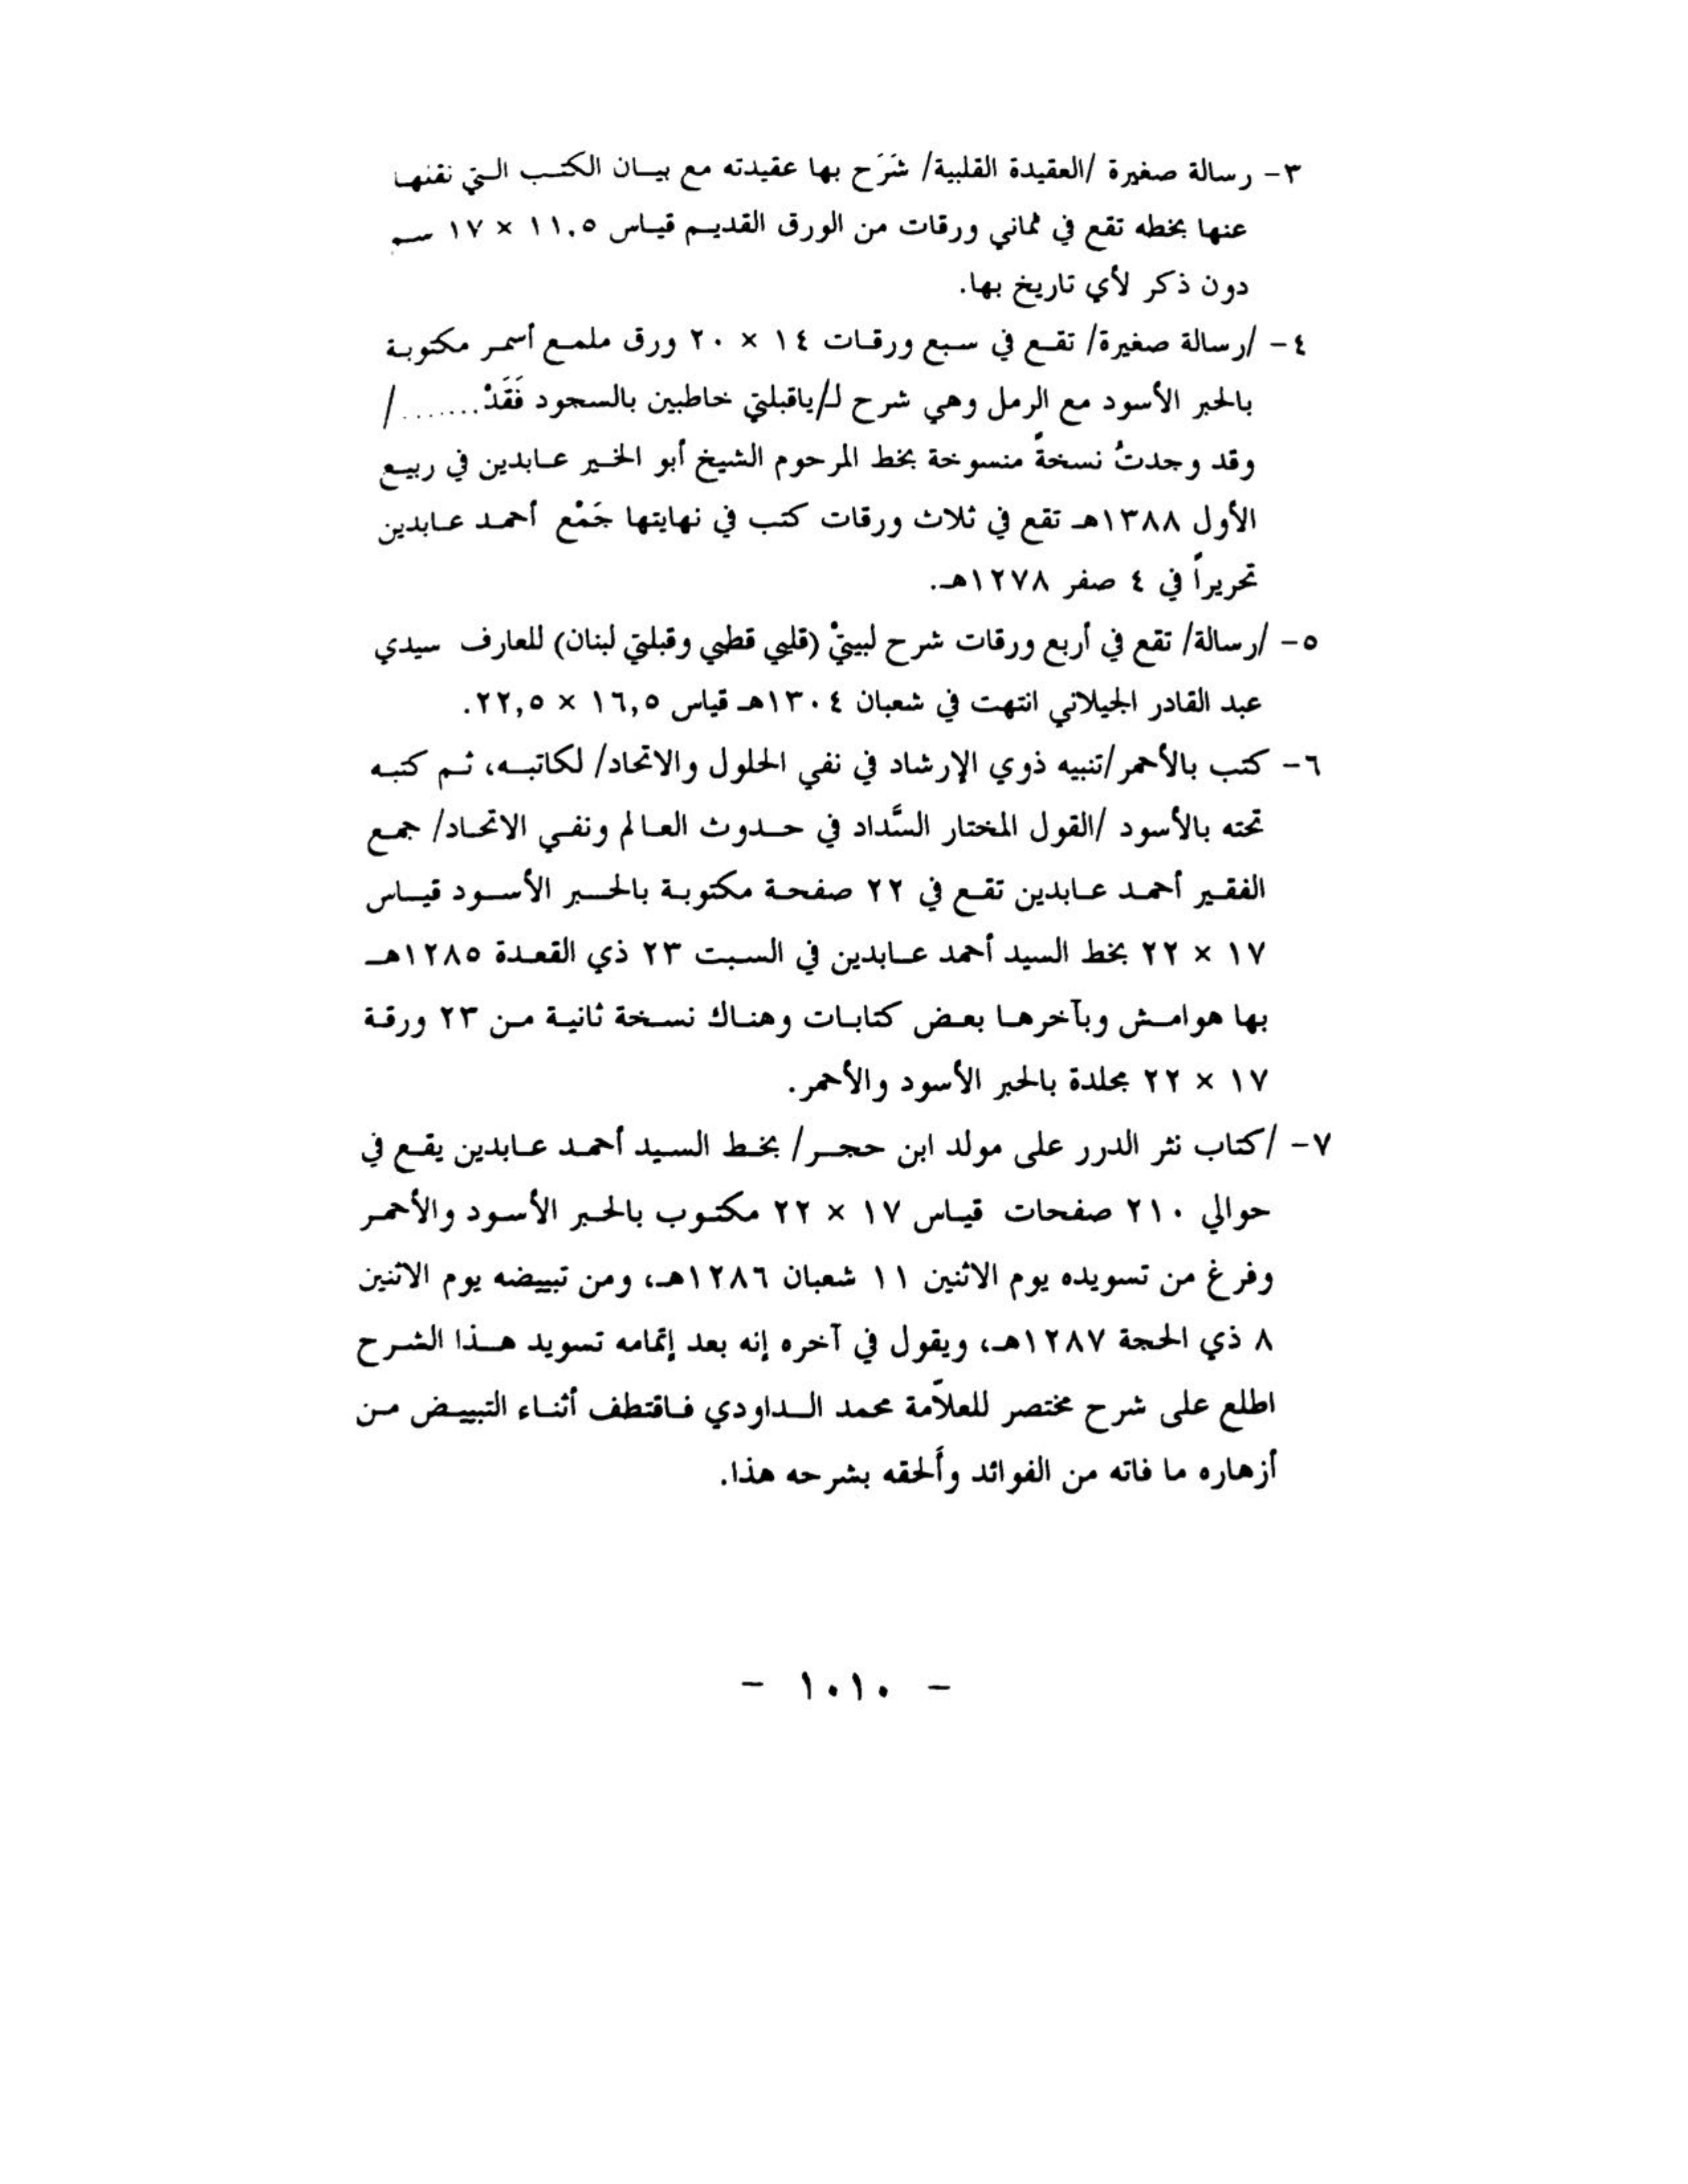 ٣- رسالة صغيرة /العقيدة القلبية/ شَرَح بها عقيدته مع بيـان الكتـب الـتي نقلها
عنها بخطه تقع في ثماني ورقات من الورق القديـم قيـاس ١١.٥ × ١٧ سـم
دون ذكر لأي تاريخ بها.
٤- /رسالة صغيرة/ تقـع في سـبع ورقـات ١٤ × ٢٠ ورق ملمـع أسمـر مكتوبـة
بالحبر الأسود مع الرمل وهي شرح لـ/ياقبلتي خاطبين بالسجود فَقَدْ......./
وقد وجدتُ نسخةً منسوخة بخط المرحوم الشيخ أبو الخـير عـابدين في ربيـع
الأول ١٣٨٨هـ تقع في ثلاث ورقات كتب في نهايتها جَمْع أحمـد عـابدين
تحريراً في ٤ صفر ١٢٧٨هـ.
٥- /رسالة/ تقع في أربع ورقات شرح لبيتيْ (قلبي قطبي وقبلتي لبنان) للعارف سيدي
عبد القادر الجيلاني انتهت في شعبان ١٣٠٤هـ قياس ١٦,٥ × ٢٢,٥.
٦- كتب بالأحمر/تنبيه ذوي الإرشاد في نفي الحلول والاتحاد/ لكاتبـه، ثـم كتبـه
تحته بالأسود /القول المختار السَّداد في حـدوث العـالم ونفـي الاتحـاد/ جمـع
الفقـير أحمـد عـابدين تقـع في ٢٢ صفحـة مكتوبـة بالحـبر الأسـود قيـاس
١٧ × ٢٢ بخط السيد أحمد عـابدين في السـبت ٢٣ ذي القعـدة ١٢٨٥هـ
بها هوامـش وبآخرهـا بعـض كتابـات وهنـاك نسـخة ثانيـة مـن ٢٣ ورقـة
١٧ × ٢٢ مجلدة بالحبر الأسود والأحمر.
٧- /كتاب نثر الدرر على مولد ابن حجـر/ بخـط السـيد أحمـد عـابدين يقـع في
حوالي ٢١٠ صفحات قيـاس ١٧ × ٢٢ مكتـوب بالحـبر الأسـود والأحمـر
وفرغ من تسويده يوم الاثنين ١١ شعبان ١٢٨٦هـ، ومن تبييضه يوم الاثنين
٨ ذي الحجة ١٢٨٧هـ، ويقول في آخره إنه بعد إتمامه تسويد هـذا الشـرح
اطلع على شرح مختصر للعلاّمة محمد الـداودي فـاقتطف أثنـاء التبييـض مـن
أزهاره ما فاته من الفوائد وأَلحقه بشرحه هذا.
- ١٠١٠ -